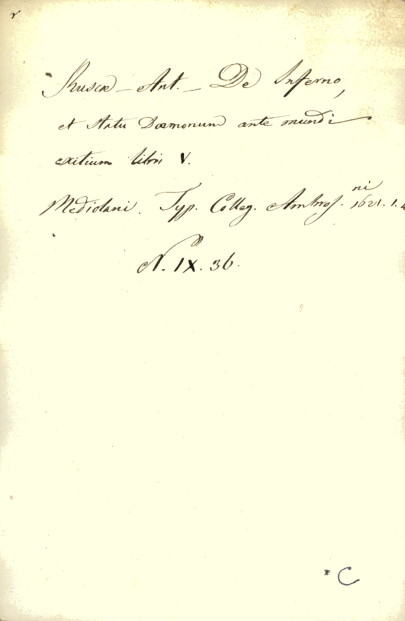 Ruscæ - Ant. - De Inferno,
et statu Dæmonum ante mundi
exitium libri V.
Mediolani. Typ. Colleg. Ambros.ni 1621. 1.4
N. IX. 36.
C